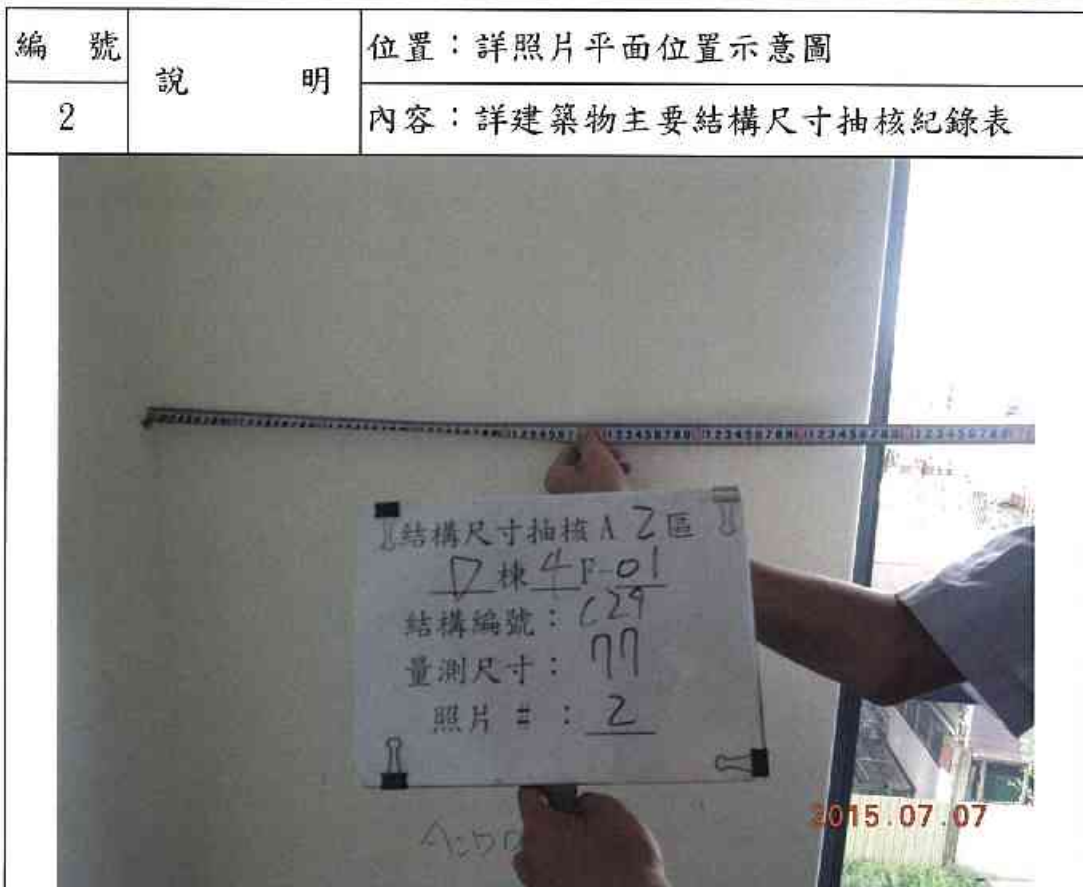 編號
2
說明
位置：詳照片平面位置示意圖
內容：詳建築物主要結構尺寸抽核紀錄表
結構尺寸抽核A 2區
D棟4F-01
結構編號：C29
量測尺寸：77
照片 #：2
2015.07.07